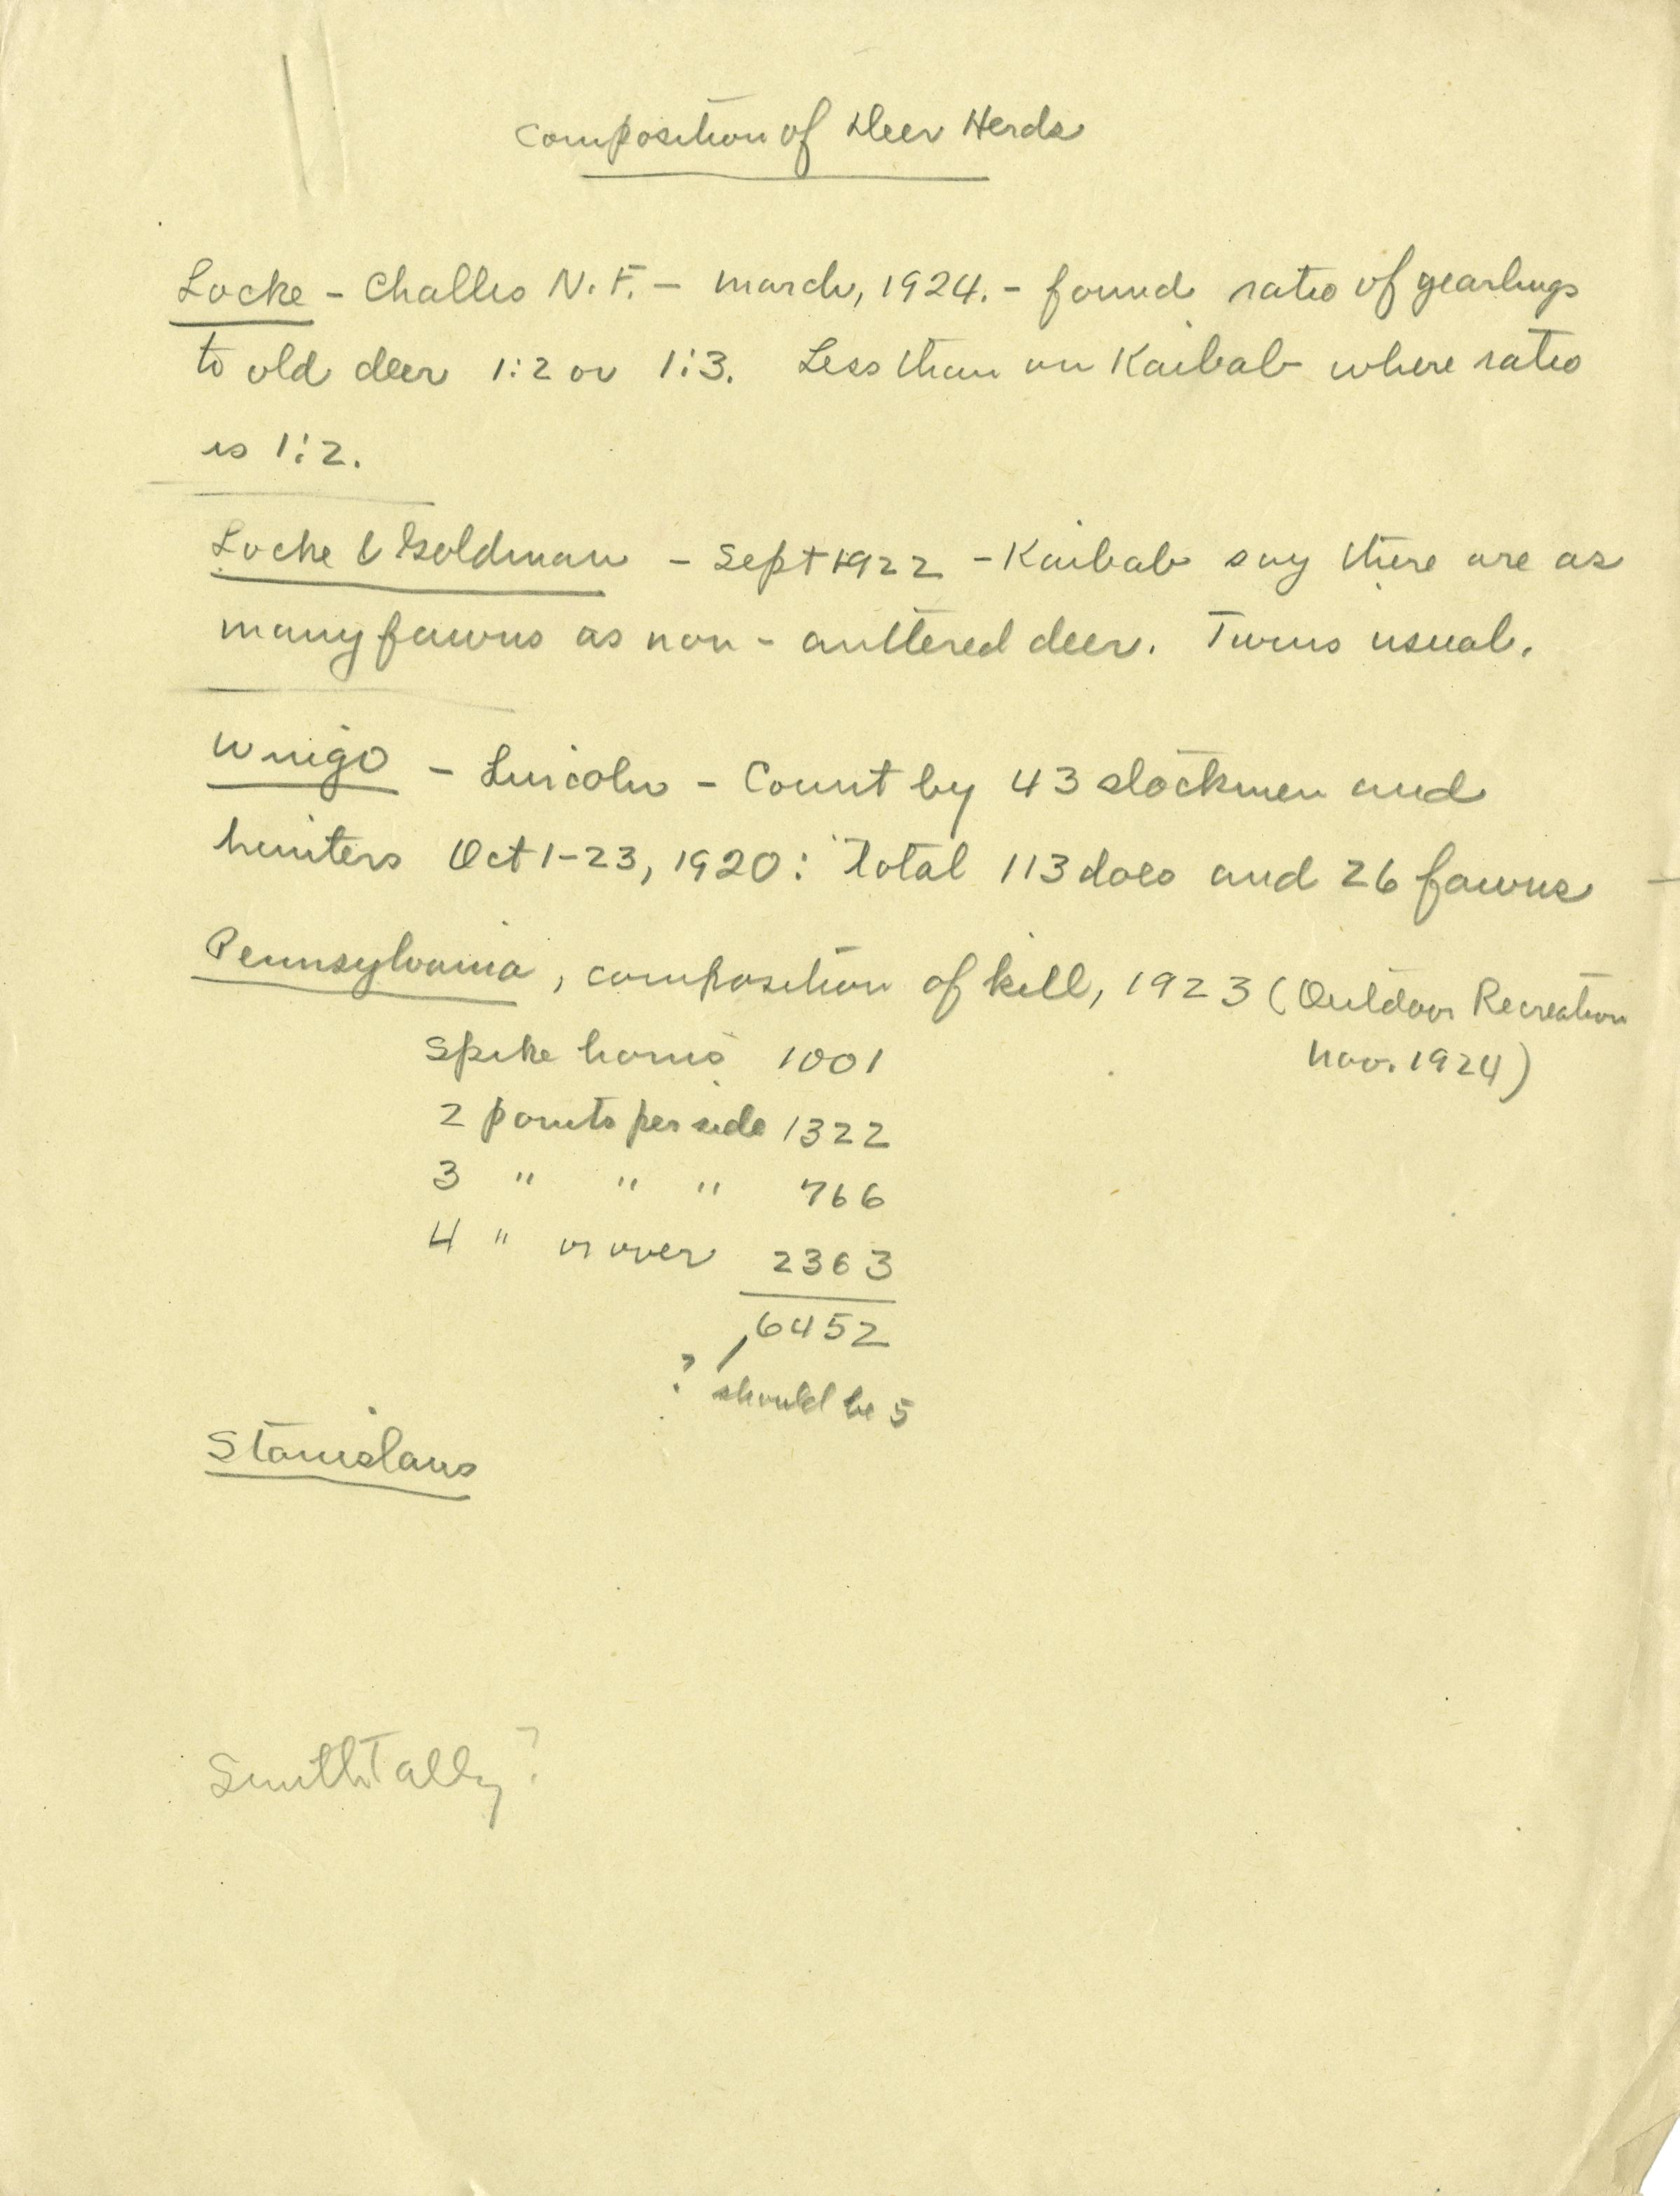 Composition of Deer Herds
Locke - Challis N.F. - March, 1924. - found ratio of yearlings
to old deer 1:2 or 1:3. Less than on Kaibab where ratio
is 1:2.
Locke & Goldman - Sept 1922 - Kaibab say there are as
many fawns as non-antlered deer. Twins usual.
Wingo - Lincoln - Count by 43 stockmen and
hunters Oct 1-23, 1920: Total 113 does and 26 fawns -
Pennsylvania, composition of kill, 1923 (Outdoor Recreation
Nov. 1924)
Spike horns 1001
2 points per side 1322
3 " " " 766
4 " or over 2363
6452
? should be 5
Stanislaus
Smith Tally?